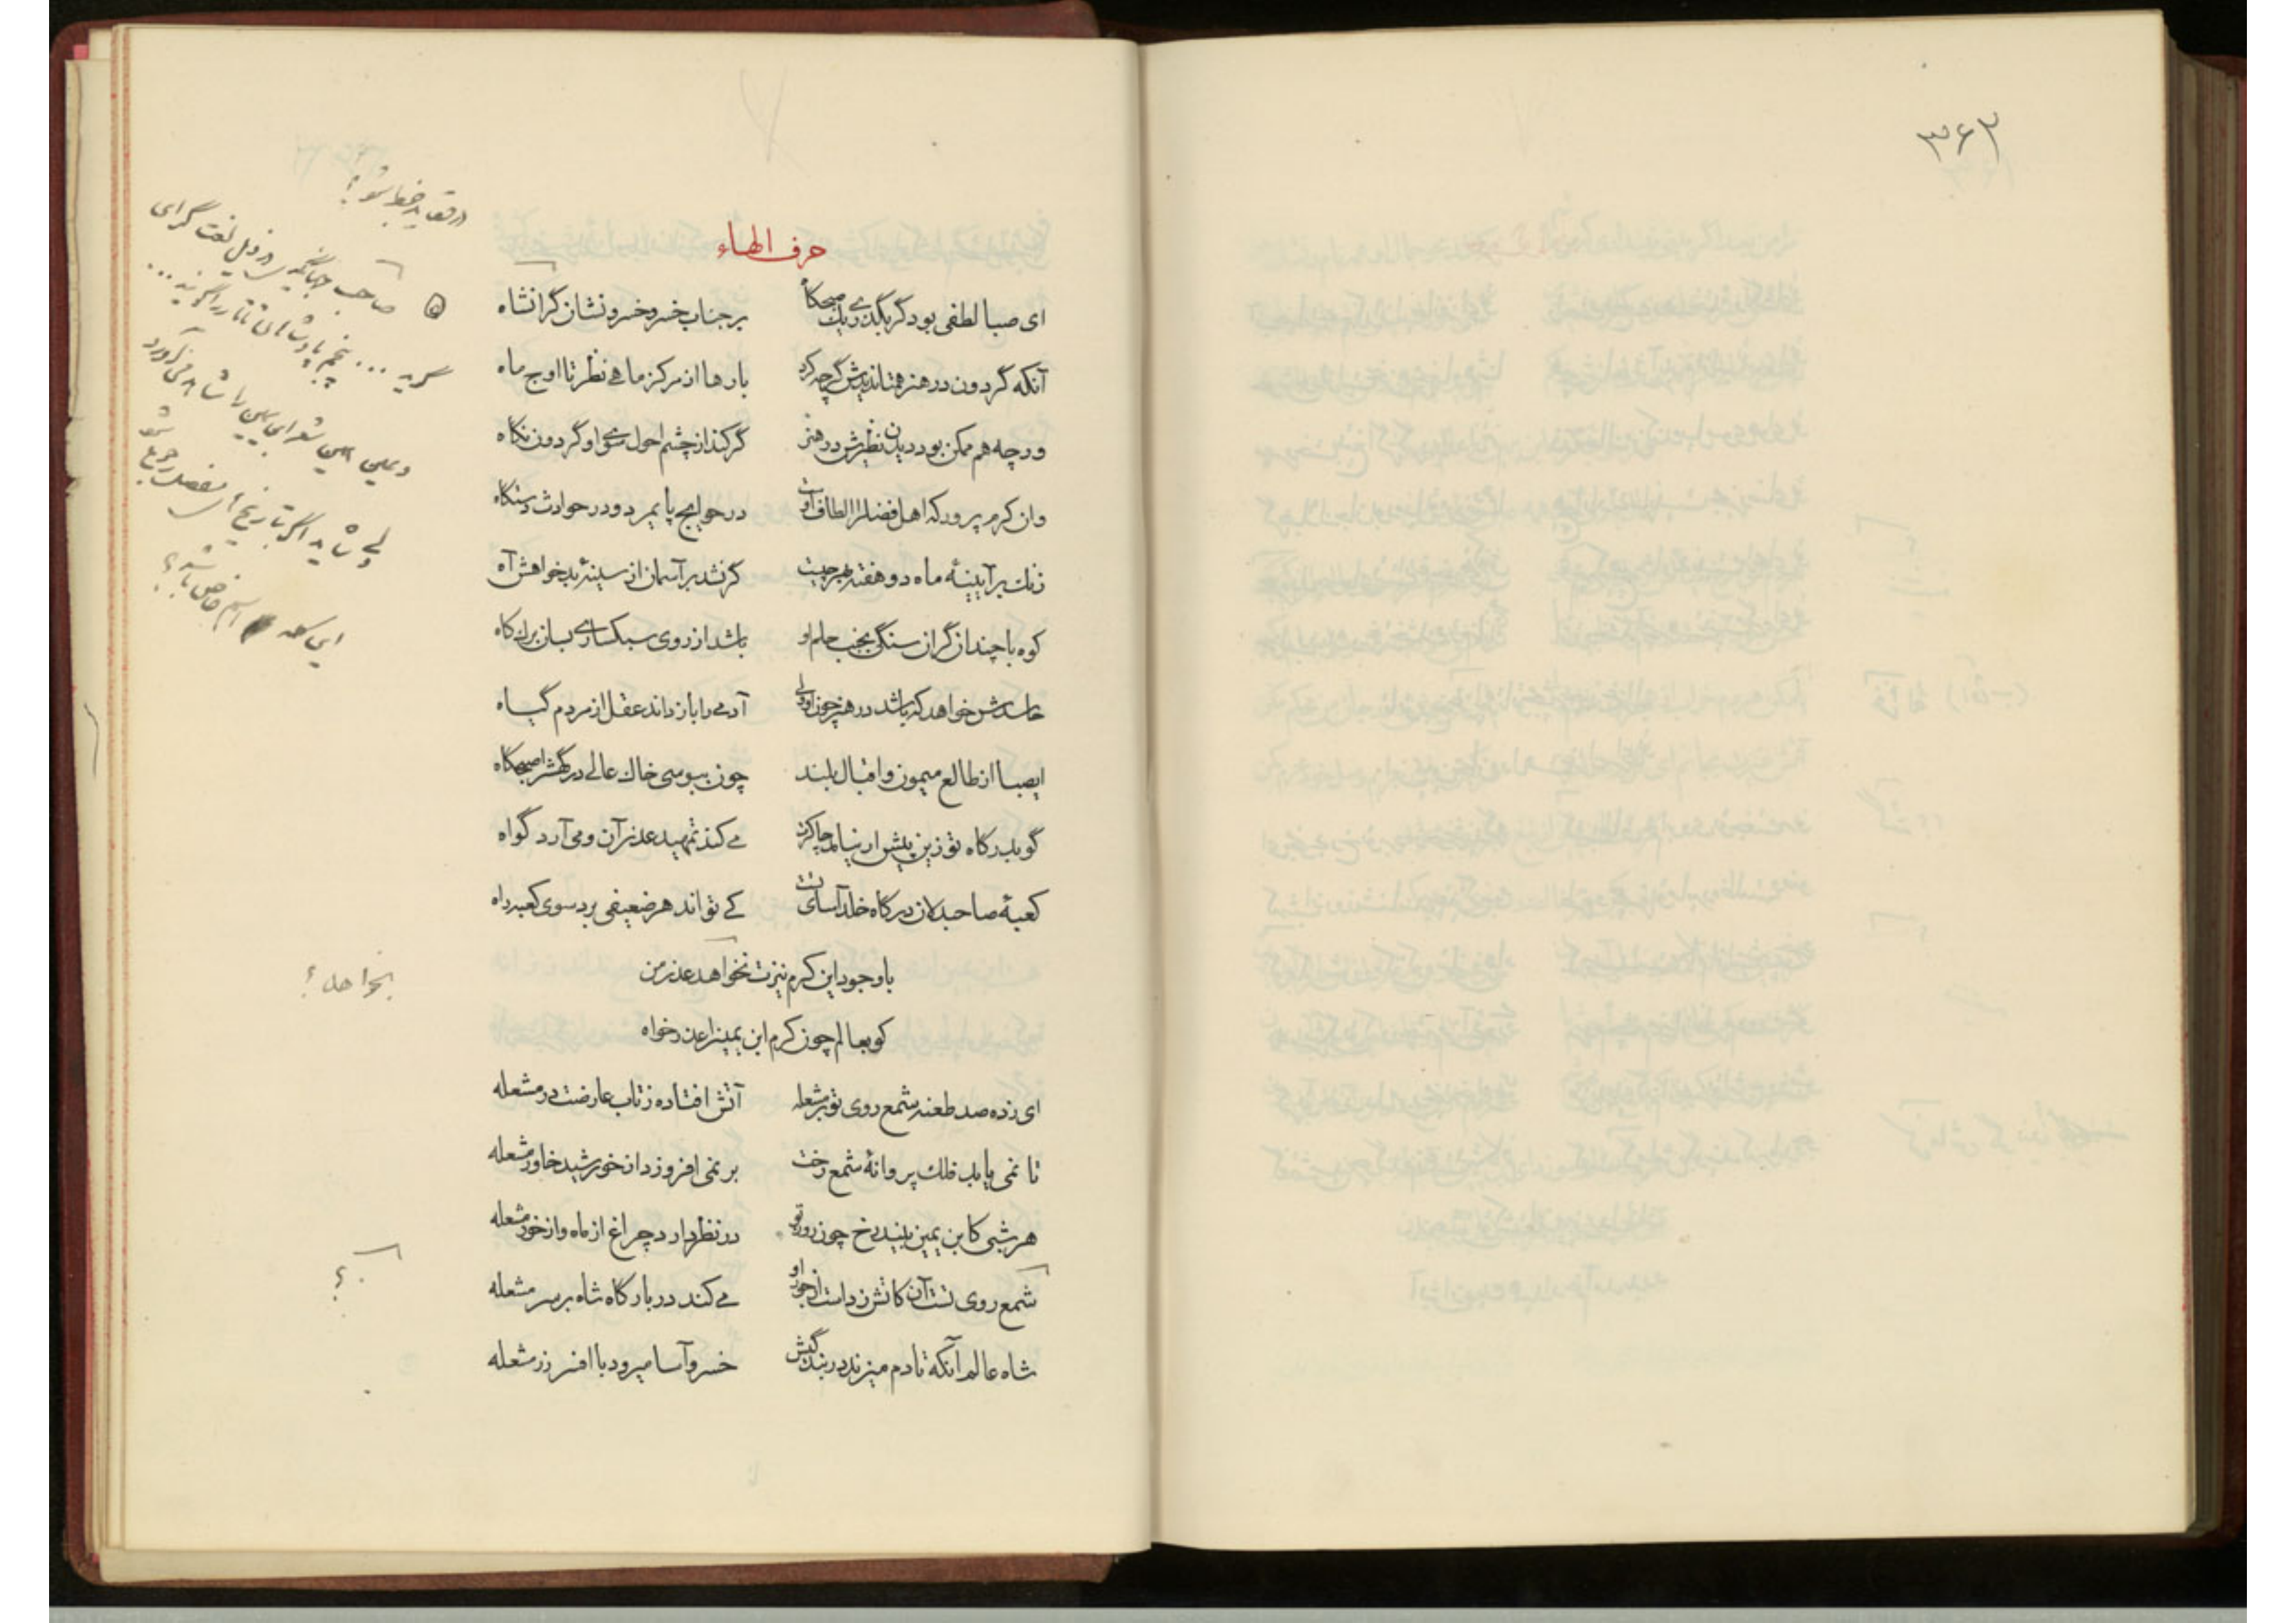 ۳۶۳
حرف الهاء
ای صبا لطفی بود گر بگذری وقت صبحگاه
بر جناب خسرو خسرو نشان گرانشاه
آنکه گردون در هنر همتا ندیدش گرچه کرد
بارها از مرکز ماهی نظر تا اوج ماه
ورچه هم ممکن بود دیدن نظیرش در هنر
گر کند از چشم احول سوی او گردون نگاه
وان کرم پرور که اهل فضل را الطاف اوست
در حوایج پایمرد و در حوادث دستگاه
زنک بر آیینهٔ ماه دو هفته بهر چیست
گر نشد بر آسمان از سینهٔ بدخواهش آه
کوه با چندان گران سنگی بجنب حلم او
باشد از روی سبکساری بسان برک کاه
حاسدش خواهد که باشد در هنر چون او ولی
آدمی را باز داند عقل از مردم گیاه
ایصبا از طالع میمون و اقبال بلند
چون ببوسی خاک عالی درگهش را صبحگاه
گو بدرگاه تو زین پیش ار نیامد چاکرت
می کند تمهید عذر آن و می آرد گواه
کعبهٔ صاحبدلان درگاه خلد آسای تست
کی تواند هر ضعیفی برد سوی کعبه راه
با وجود این کرم نیزت نخواهد عذر من
کو بعالم چون کرم ابن یمین را عذر خواه
ای زده صد طعنه شمع روی تو بر مشعله
آتش افتاده ز تاب عارضت در مشعله
تا نمی یابد فلک پروانهٔ شمع رخت
بر نمی افروزد از خورشید خاور مشعله
هر شبی کابن یمین بیند رخ چون روز تو
در نظر دارد چراغ از ماه و از خور مشعله
شمع روی تست آن کاتش زدست از خود او
می کند در بارگاه شاه بر سر مشعله
شاه عالم آنکه تا دم میزند در بندگیش
خسرو آسا میرود با افسر زر مشعله
صاحب جهانگیری در ذیل لغت گرای
گوید ... پنجم پادشاهان تاتار را گویند ...
و همین شعر ابن یمین را شاهد می آورد
ولی شاید اگر بتاریخ مفصل رجوع شود
این کلمه اسم خاص باشد؟
بخواهد؟
؟